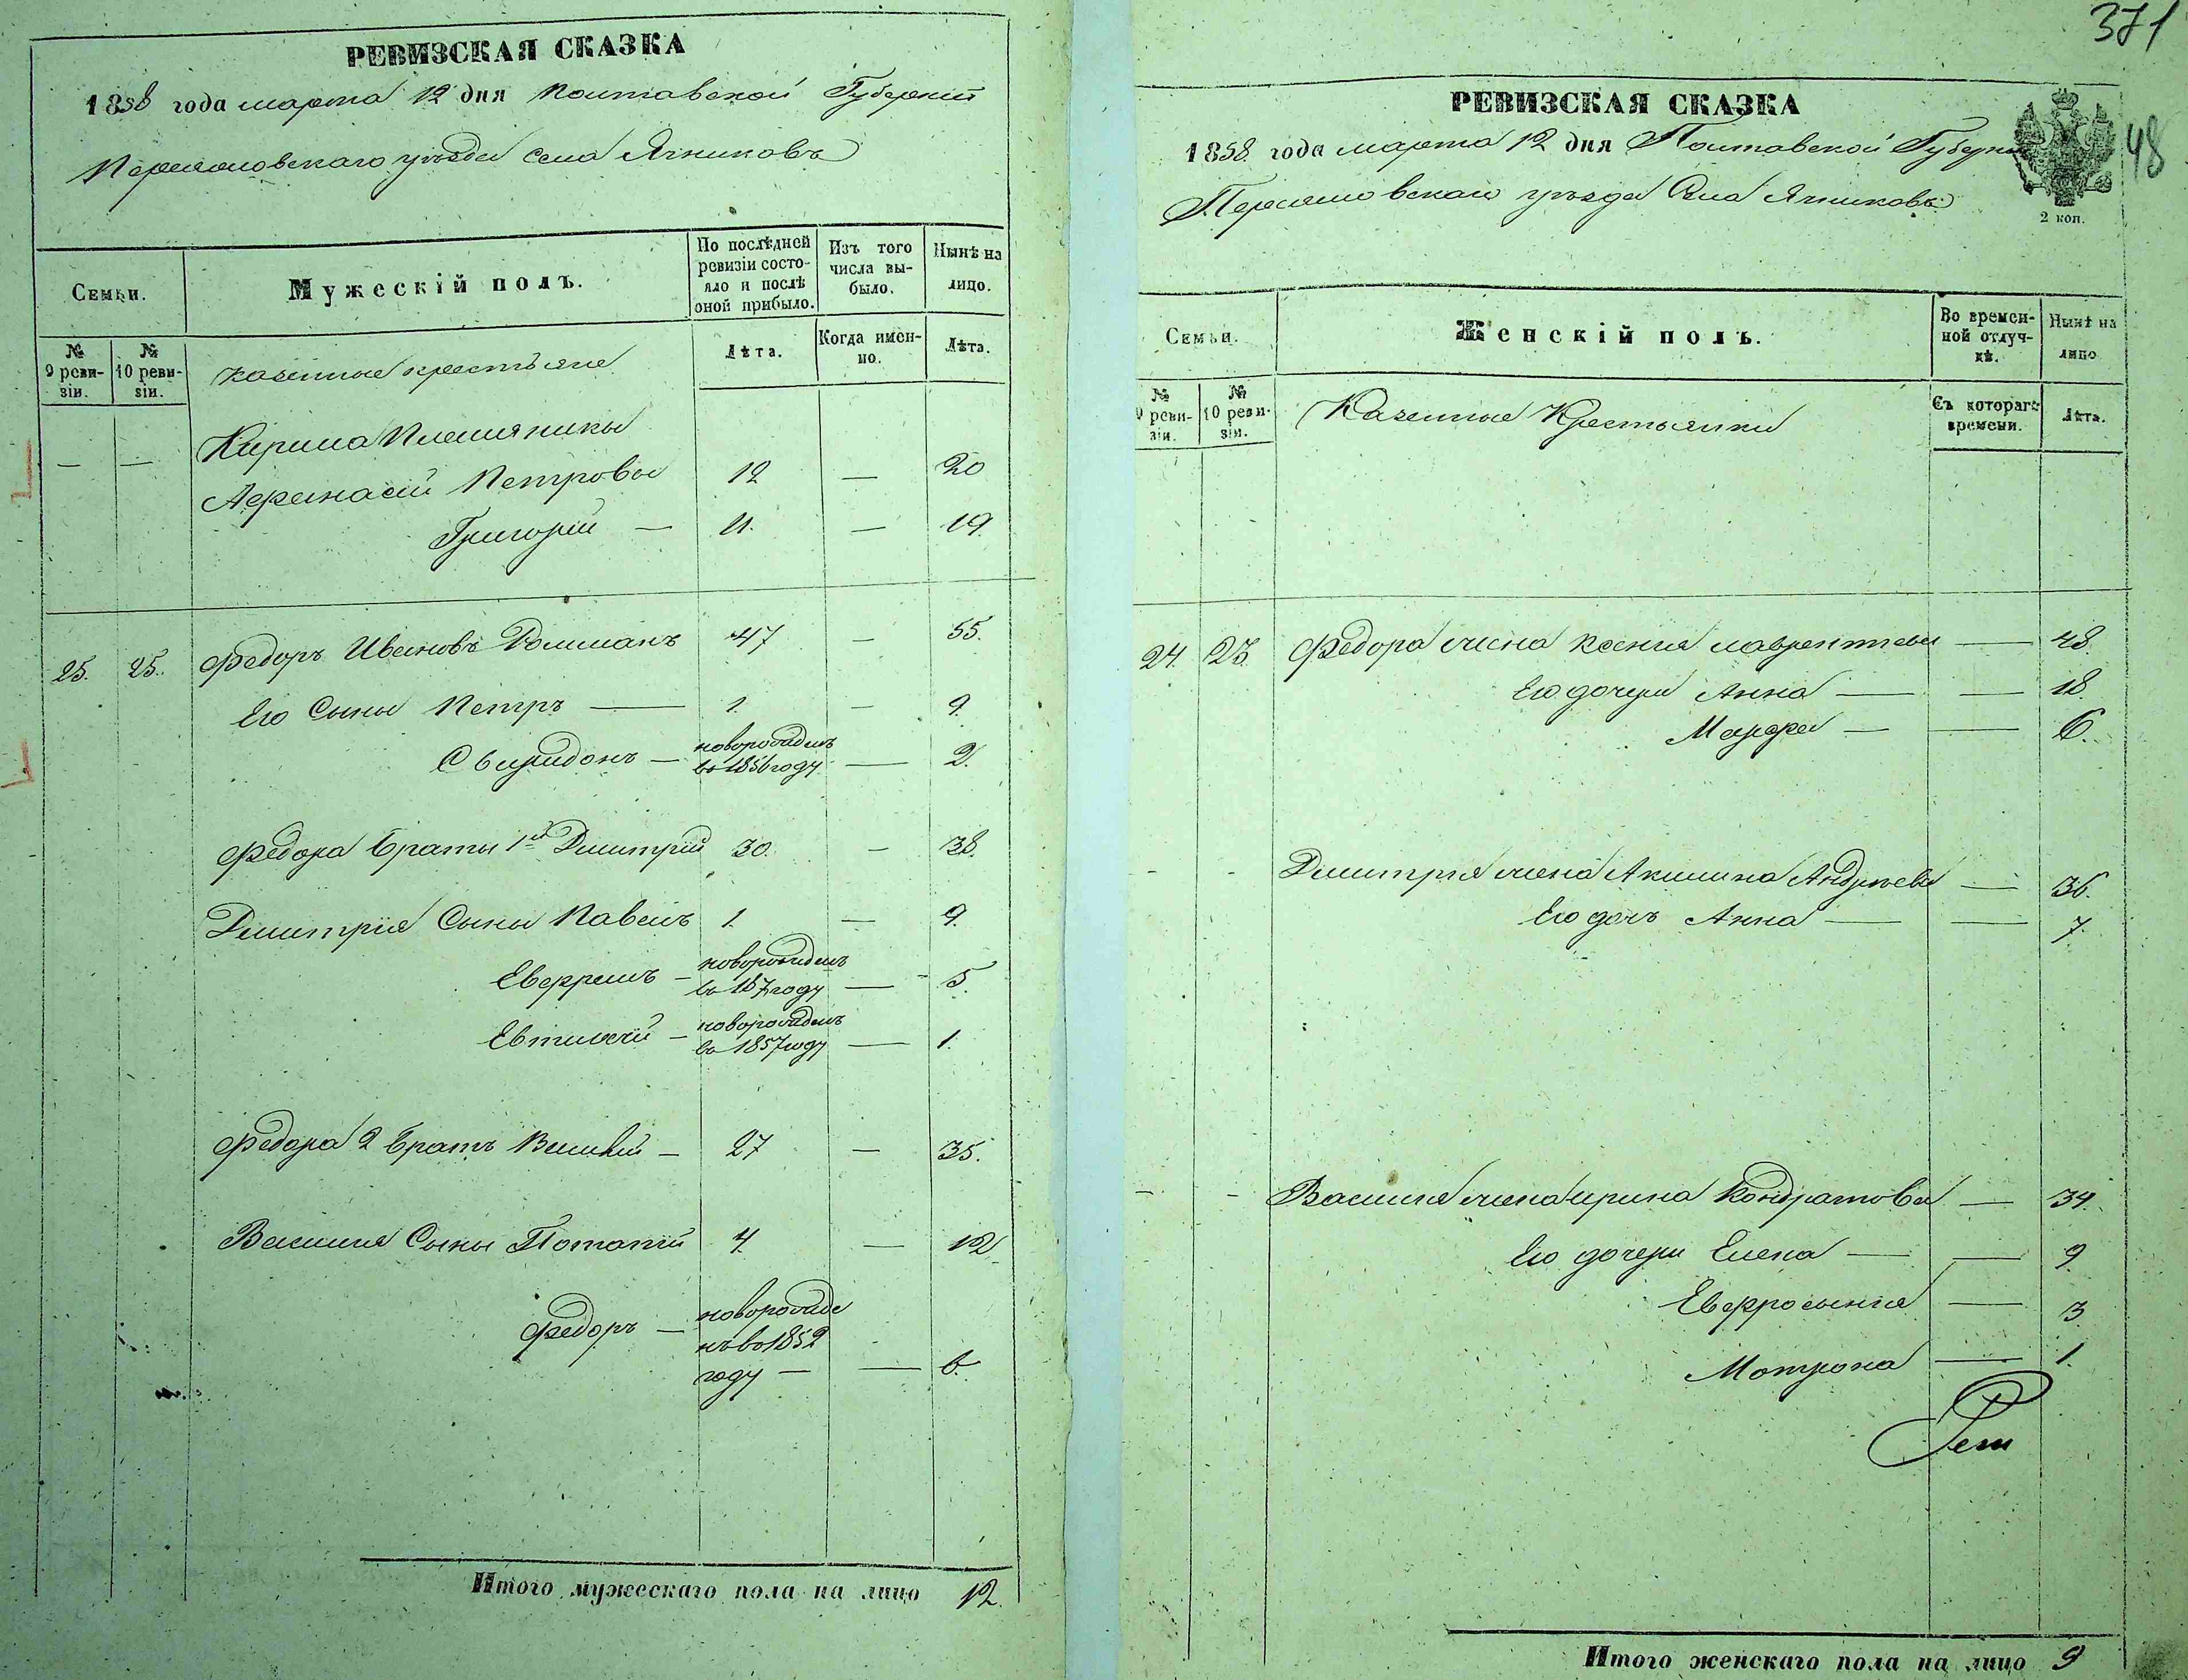 РЕВИЗСКАЯ СКАЗКА
1858 года марта 12 дня Полтавской Губернии
Переяловскаго уезда села Ячниковъ
Семьи.
Мужескій полъ.
По послѣдней ревизіи состояло и послѣ оной прибыло.
Изъ того числа выбыло.
Нынѣ на лицо.
№ 9 ревизіи.
№ 10 ревизіи.
казенные крестьяне
Лѣта.
Когда именно.
Лѣта.
— — Кирила Племяники
Афанасій Петровы 12 — 20
Григорій — 11. — 19
25. 25. Федоръ Ивановъ 47 — 55.
Его Сыны Петръ — 1. — 9.
Свиридонъ — новорожденъ во 1856 году — 2.
Федора браты 1й Дмитрій 30. — 38.
Дмитрия Сыны Павелъ 1. — 9.
Евфремъ — новорожденъ во 187 году — 5.
Евтихій — новорожденъ во 1857 году — 1.
Федора 2 братъ Василий — 27 — 35.
Василия Сыны Потапий 4. — 12
Федоръ — новорожде
нъ во 1852
году — — 6.
Итого мужескаго пола на лицо 12.
371
48
РЕВИЗСКАЯ СКАЗКА
1858 года марта 12 дня Полтавской Губернии
Переяловскаго уезда Села Ячниковъ
2 коп.
Семьи.
Женскій полъ.
Во временной отлучкѣ.
Нынѣ на лицо
№ 9 ревизіи.
№ 10 ревизіи.
Казенные Крестьянки
Съ котораго времени.
Лѣта.
24. 23. Федора жена Ксения лаврентьева — 48.
Его дочери Анна — — 18
Марфа — — 6.
- - Дмитрия жена Акилина Андреева — 36.
Его дочь Анна — — 7.
- - Василия жена ирина Кондратова — 34.
Его дочери Елена — — 9
Евфросыния — 3
Мотрона — 1.
Итого женскаго пола на лицо 9